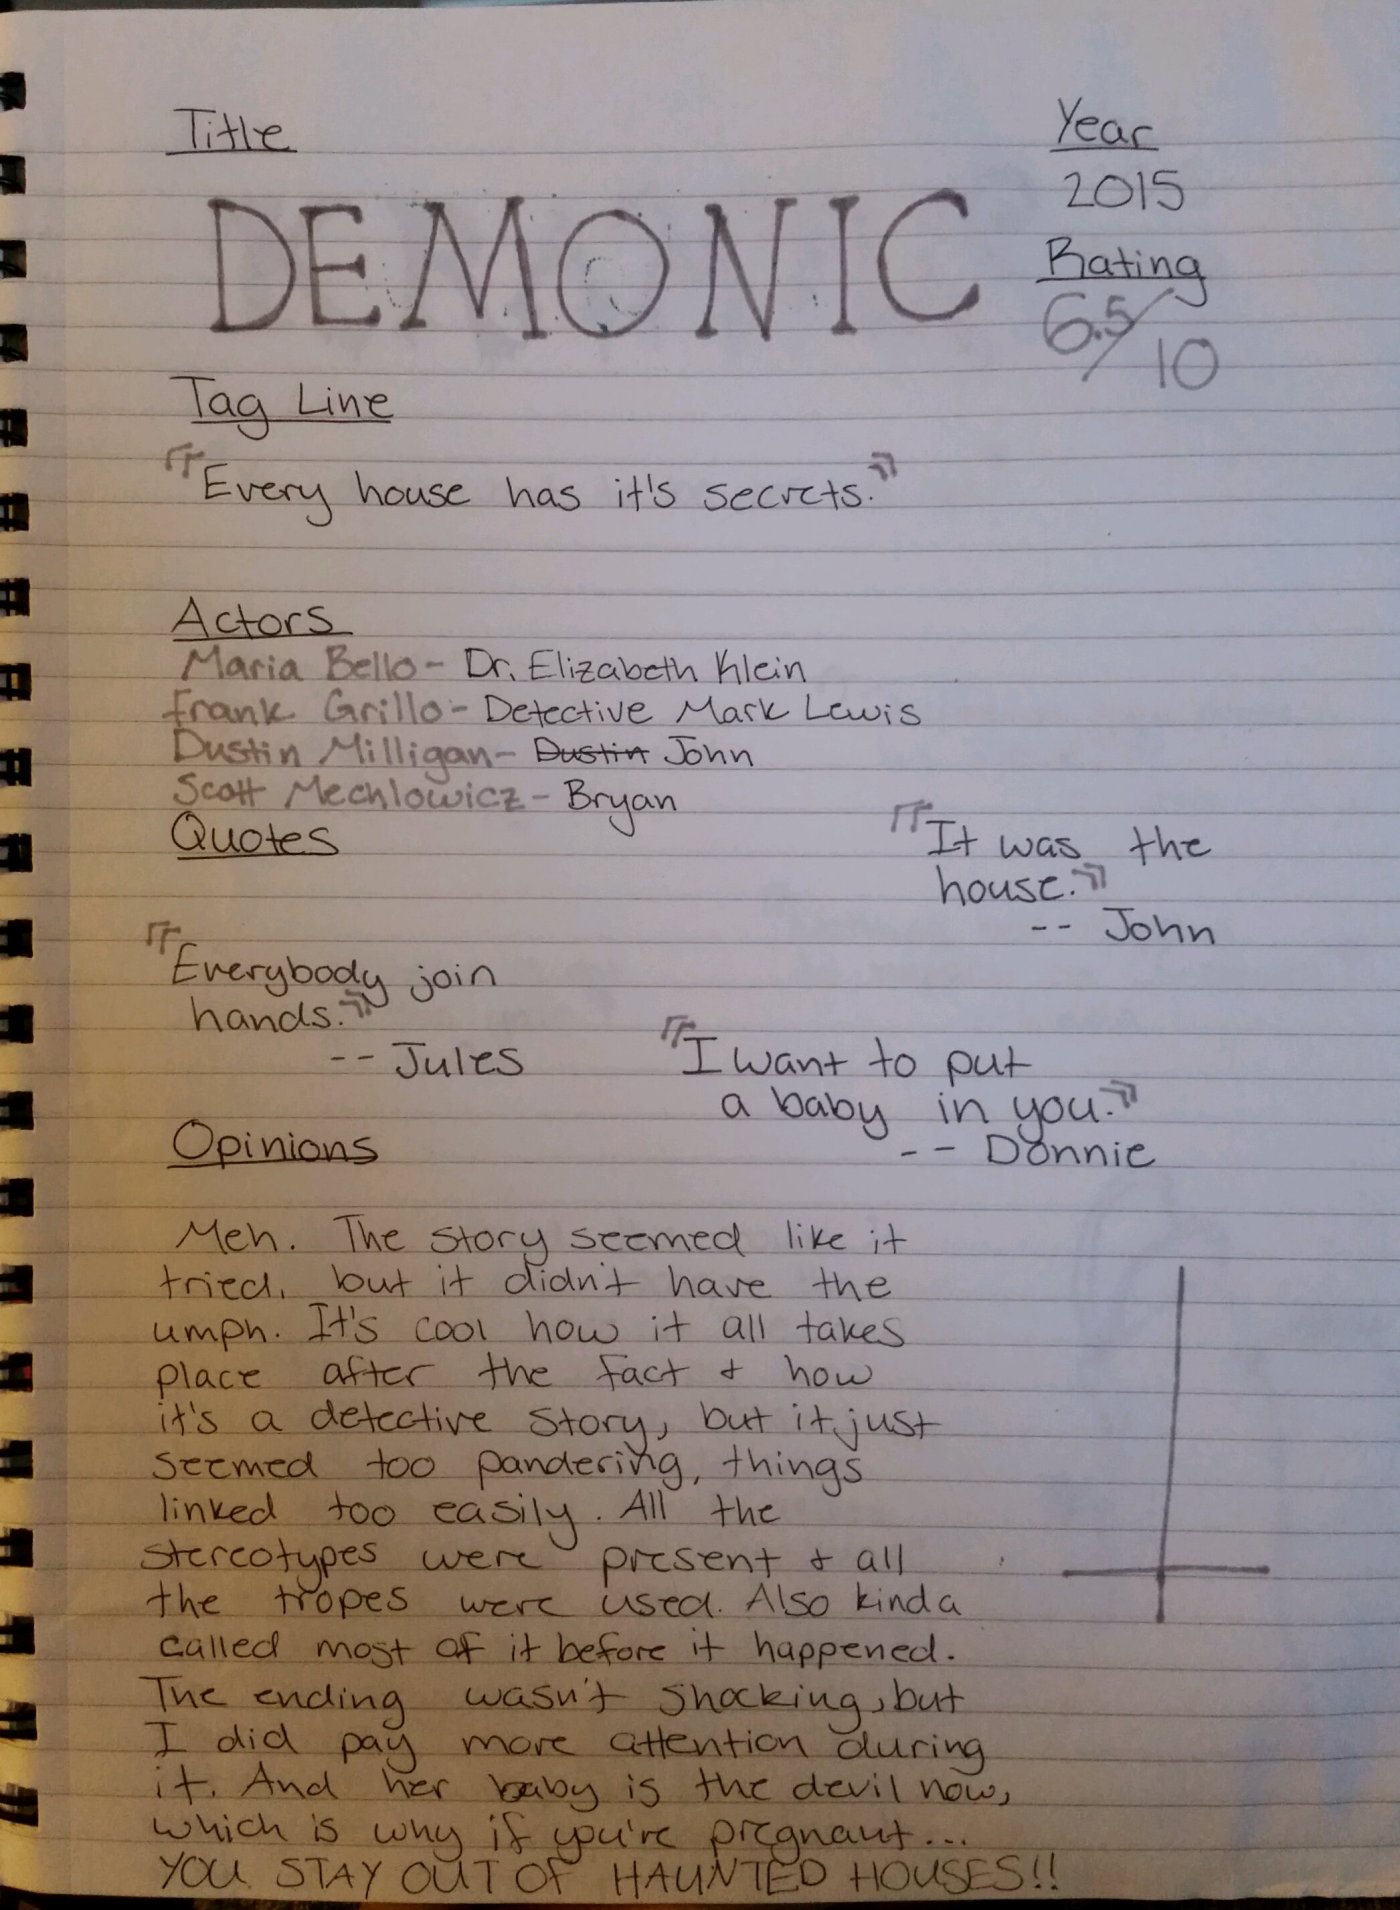 Title
DEMONIC
Year
2015
Rating
6.5/10
Tag Line
"Every house has it's secrets."
Actors
Maria Bello - Dr. Elizabeth Klein
Frank Grillo - Detective Mark Lewis
Dustin Milligan - Dustin John
Scott Mechlowicz - Bryan
Quotes
"It was the
house."
-- John
"Everybody join
hands."
-- Jules
"I want to put
a baby in you."
-- Donnie
Opinions
Meh. The story seemed like it
tried, but it didn't have the
umph. It's cool how it all takes
place after the fact & how
it's a detective story, but it just
seemed too pandering, things
linked too easily. All the
stereotypes were present & all
the tropes were used. Also kinda
called most of it before it happened.
The ending wasn't shocking, but
I did pay more attention during
it. And her baby is the devil now,
which is why if you're pregnant...
YOU STAY OUT OF HAUNTED HOUSES!!